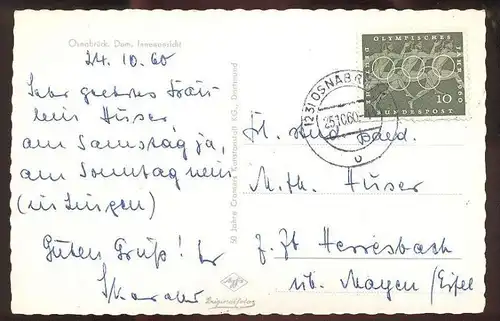 Osnabrück, Dom, Innenansicht
24.10.60
Sehr geehrtes Fräu
lein Huser
am Samstag ja,
am Sonntag nein
(in Lingen)
Guten Gruß! Ihr
50 Jahre Cramers Kunstanstalt KG., Dortmund
Agfa
Originalfoto
OLYMPISCHES
JAHR 1960
DEUTSCHE
BUNDESPOST
10
(23) OSNABR
25.10.60
Frl. stud. paed.
M. Th. Huser
z. Zt Herresbach
üb. Mayen / Eifel